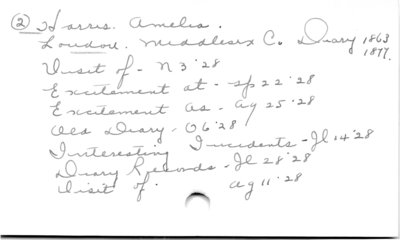 ② Harris. Amelia.
London. Middlesex Co Diary 1863
1877.
Visit of - N 3 '28
Excitement at - Sp 22 '28
Excitement as - Ag 25 '28
Old Diary - O 6 '28
Interesting Incidents - Jl 14 '28
Diary Records - Jl 28 '28
Visit of. Ag 11 '28